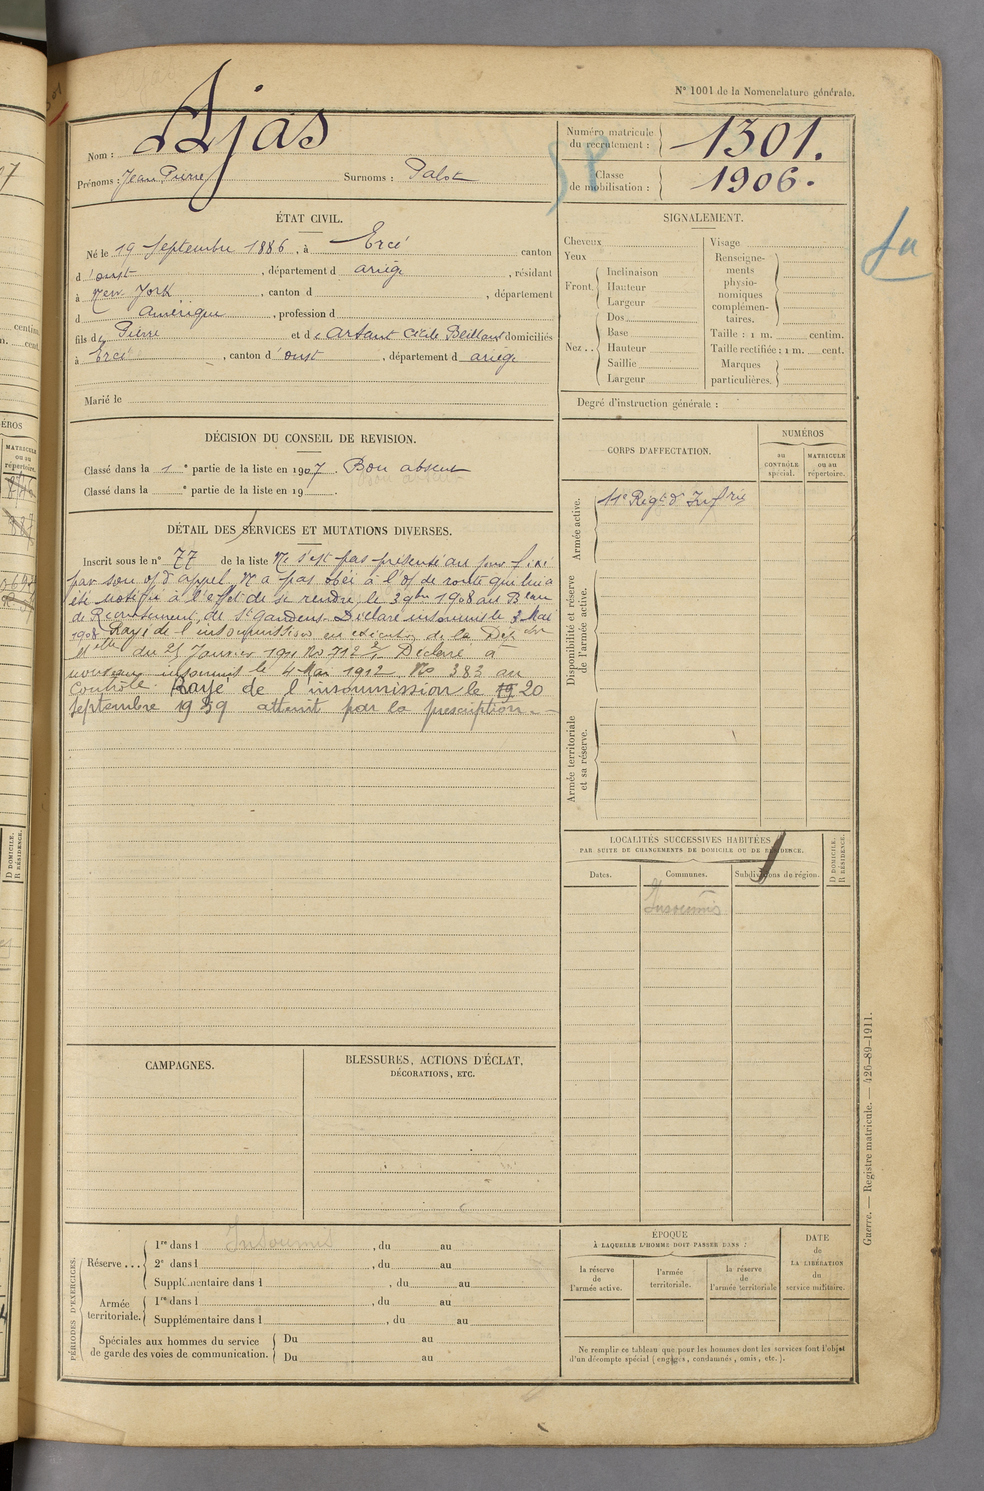 N° 1001 de la Nomenclature générale.
Nom : Ajas
Prénoms : Jean Pierre Surnoms : Palot
Numéro matricule du recrutement : 1301.
Classe de mobilisation : 1906.
ÉTAT CIVIL.
Né le 19 Septembre 1886, à Ercé canton
d'oust, département d ariège, résidant
à New York, canton d , département
d amérique, profession d
fils de Pierre et de Artaut Cécile domiciliés
à Ercé, canton d'oust, département d ariège
Marié le
SIGNALEMENT.
Cheveux
Yeux
Front. Inclinaison
Hauteur
Largeur
Nez.. Dos
Base
Hauteur
Saillie
Largeur
Visage
Renseigne-
ments
physio-
nomiques
complémen-
taires.
Taille : 1 m. centim.
Taille rectifiée : 1 m. cent.
Marques
particulières.
Degré d'instruction générale :
DÉCISION DU CONSEIL DE REVISION.
Classé dans la 1e partie de la liste en 1907. Bon absent
Classé dans la e partie de la liste en 19 .
DÉTAIL DES SERVICES ET MUTATIONS DIVERSES.
Inscrit sous le n° 77 de la liste Ne s'est pas présenté au jour fixé
par son o/ d'appel, N'a pas obéi à l'o/ de route qui lui a
été notifié à l'effet de se rendre le 3 9bre 1908 au Beau
de Recrutement de St Gaudens. Déclaré insoumis le 3 Mai
1908 Rayé de l'insoumission en exécution de la Dép
Mlle du 25 Janvier 1911 No 712 2/1 Déclaré à
nouveau insoumis le 4 Mai 1912 No 383 au
Contrôle. Rayé de l'insoumission le 19 20
septembre 1939 atteint par la prescription.
CORPS D'AFFECTATION.
NUMÉROS
au CONTRÔLE spécial.
MATRICULE ou au répertoire.
Armée active.
11e Régt d'Infrie
Disponibilité et réserve de l'armée active.
Armée territoriale et sa réserve.
LOCALITÉS SUCCESSIVES HABITÉES
PAR SUITE DE CHANGEMENTS DE DOMICILE OU DE RÉSIDENCE.
Dates. Communes. Subdivisions de région. D DOMICILE. R RÉSIDENCE.
Insoumis
CAMPAGNES.
BLESSURES, ACTIONS D'ÉCLAT,
DÉCORATIONS, ETC.
PÉRIODES D'EXERCICES.
Réserve ... 1re dans l Insoumis, du au
2e dans l , du au
Supplémentaire dans l , du au
Armée territoriale. 1re dans l , du au
Supplémentaire dans l , du au
Spéciales aux hommes du service
de garde des voies de communication.
Du au
Du au
ÉPOQUE
À LAQUELLE L'HOMME DOIT PASSER DANS :
la réserve de l'armée active.
l'armée territoriale.
la réserve de l'armée territoriale
DATE
de
LA LIBÉRATION
du
service militaire.
Ne remplir ce tableau que pour les hommes dont les services font l'objet
d'un décompte spécial (engagés, condamnés, omis, etc.).
Guerre. — Registre matricule. — 426-89-1911.